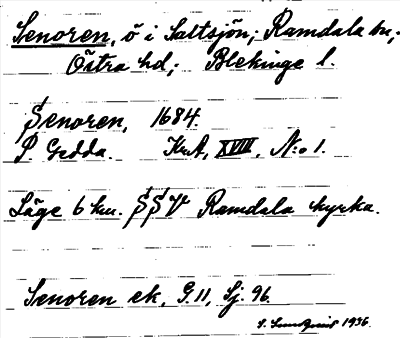 Senoren, ö i Saltsjön; Ramdala sn;
Östra hd; Blekinge l.
Senoren, 1684.
P. Gedda. KrA, XVIII, N:o 1.
Läge 6 km. SSV Ramdala kyrka.
Senoren ek. G. 11, Sj. 96.
S. Sundquist 1936.